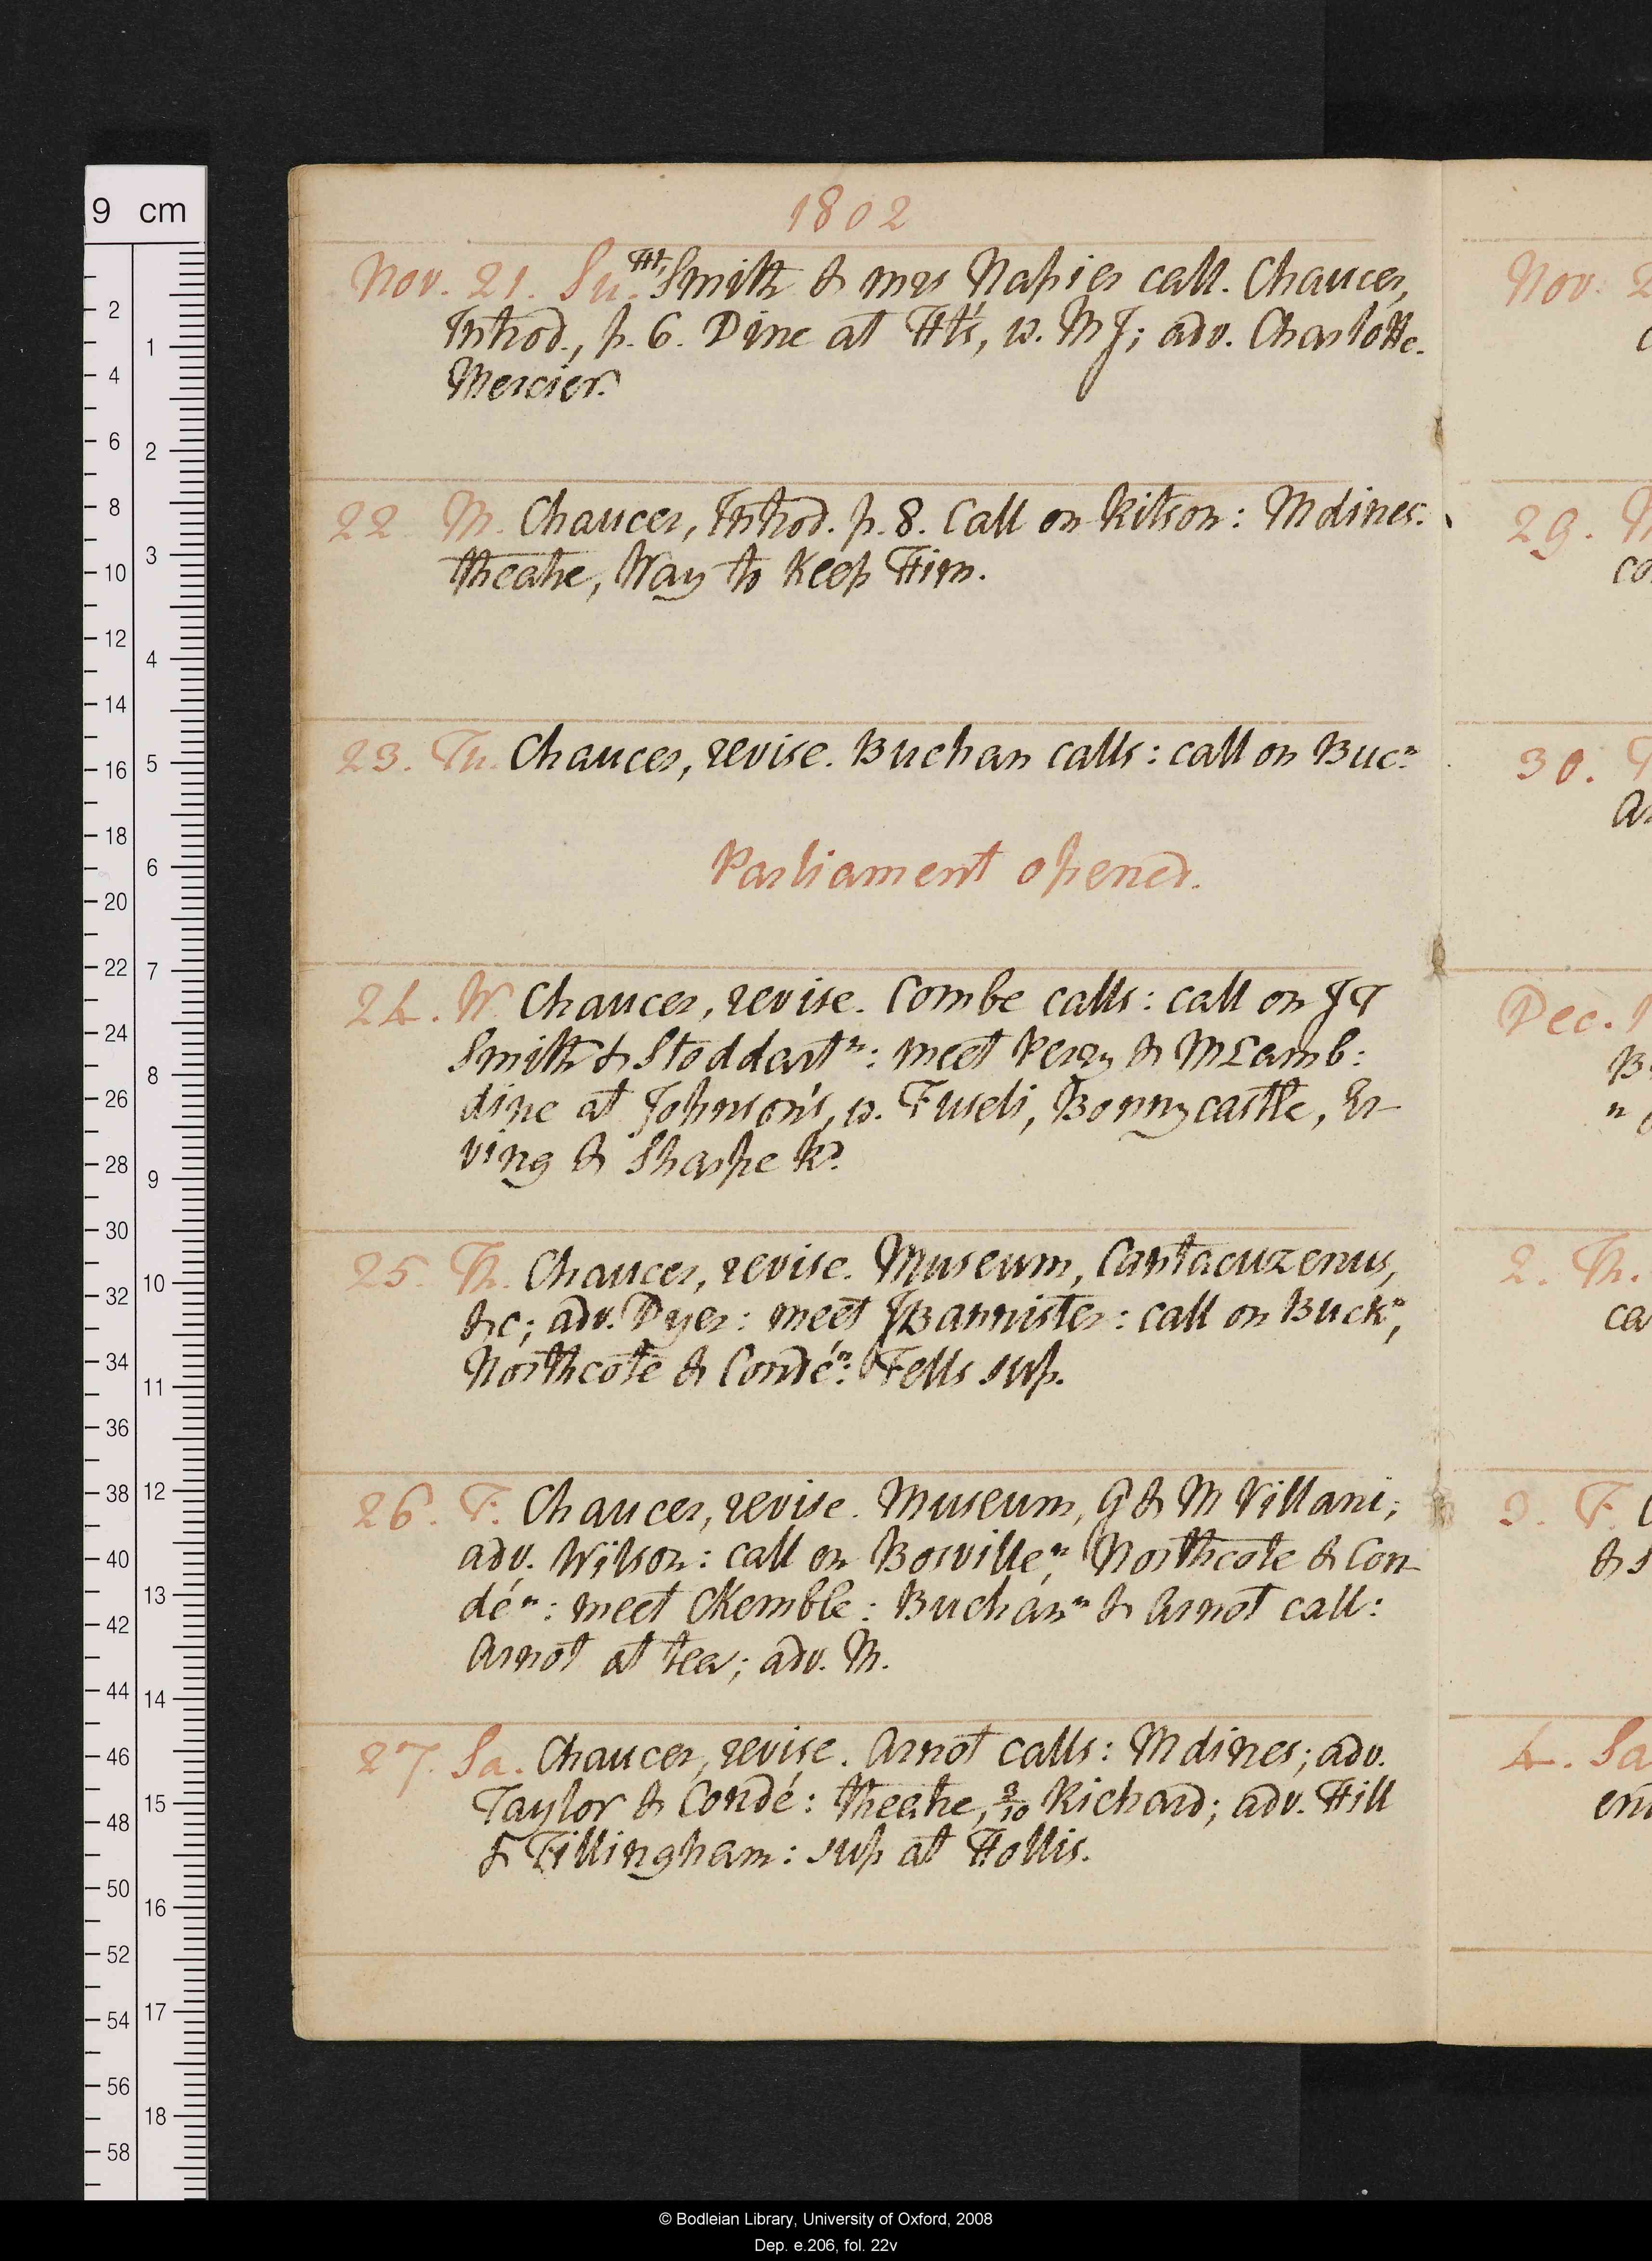 1802
Nov. 21. Su. Ht, Smith & mrs Napier call. Chaucer,
Introd., p. 6. Dine at Ht's, w. M J; adv. Charlotte
Mercier.
22. M. Chaucer, Introd. p. 8. Call on Ritson: M dines.
theatre, Way to Keep Him.
23. Tu. Chaucer, revise. Buchan calls: call on Bucⁿ
Parliament opened.
24. W. Chaucer, revise. Combe calls: call on J T
Smith & Stoddartⁿ: meet Perry & M Lamb:
dine at Johnson's, w. Fuseli, Bonnycastle, Er-
ving & Sharpe Kᵈ.
25. Th. Chaucer, revise. Museum, Cantacuzenus,
&c; adv. Dyer: meet J Bannister: call on Buckⁿ,
Northcote & Condéⁿ: Fells sup.
26. F. Chaucer, revise. Museum, G & M Villani;
adv. Wilson: call on Bosvilleⁿ, Northcote & Con-
déⁿ: meet C Kemble: Buchanⁿ & Arnot call:
Arnot at tea; adv. M.
27. Sa. Chaucer, revise. Arnot calls: M dines; adv.
Taylor & Condé: theatre, 3/10 Richard; adv. Hill
& Fillingham: sup at Hollis.
Nov. 2
29. M
co
30. T
Ar
Dec. 1
B
2. Th.
ca
3. F. C
& S
4. Sa
9 cm
2
4
6
8
10
12
14
16
18
20
22
24
26
28
30
32
34
36
38
40
42
44
46
48
50
52
54
56
58
1
2
3
4
5
6
7
8
9
10
11
12
13
14
15
16
17
18
© Bodleian Library, University of Oxford, 2008
Dep. e.206, fol. 22v